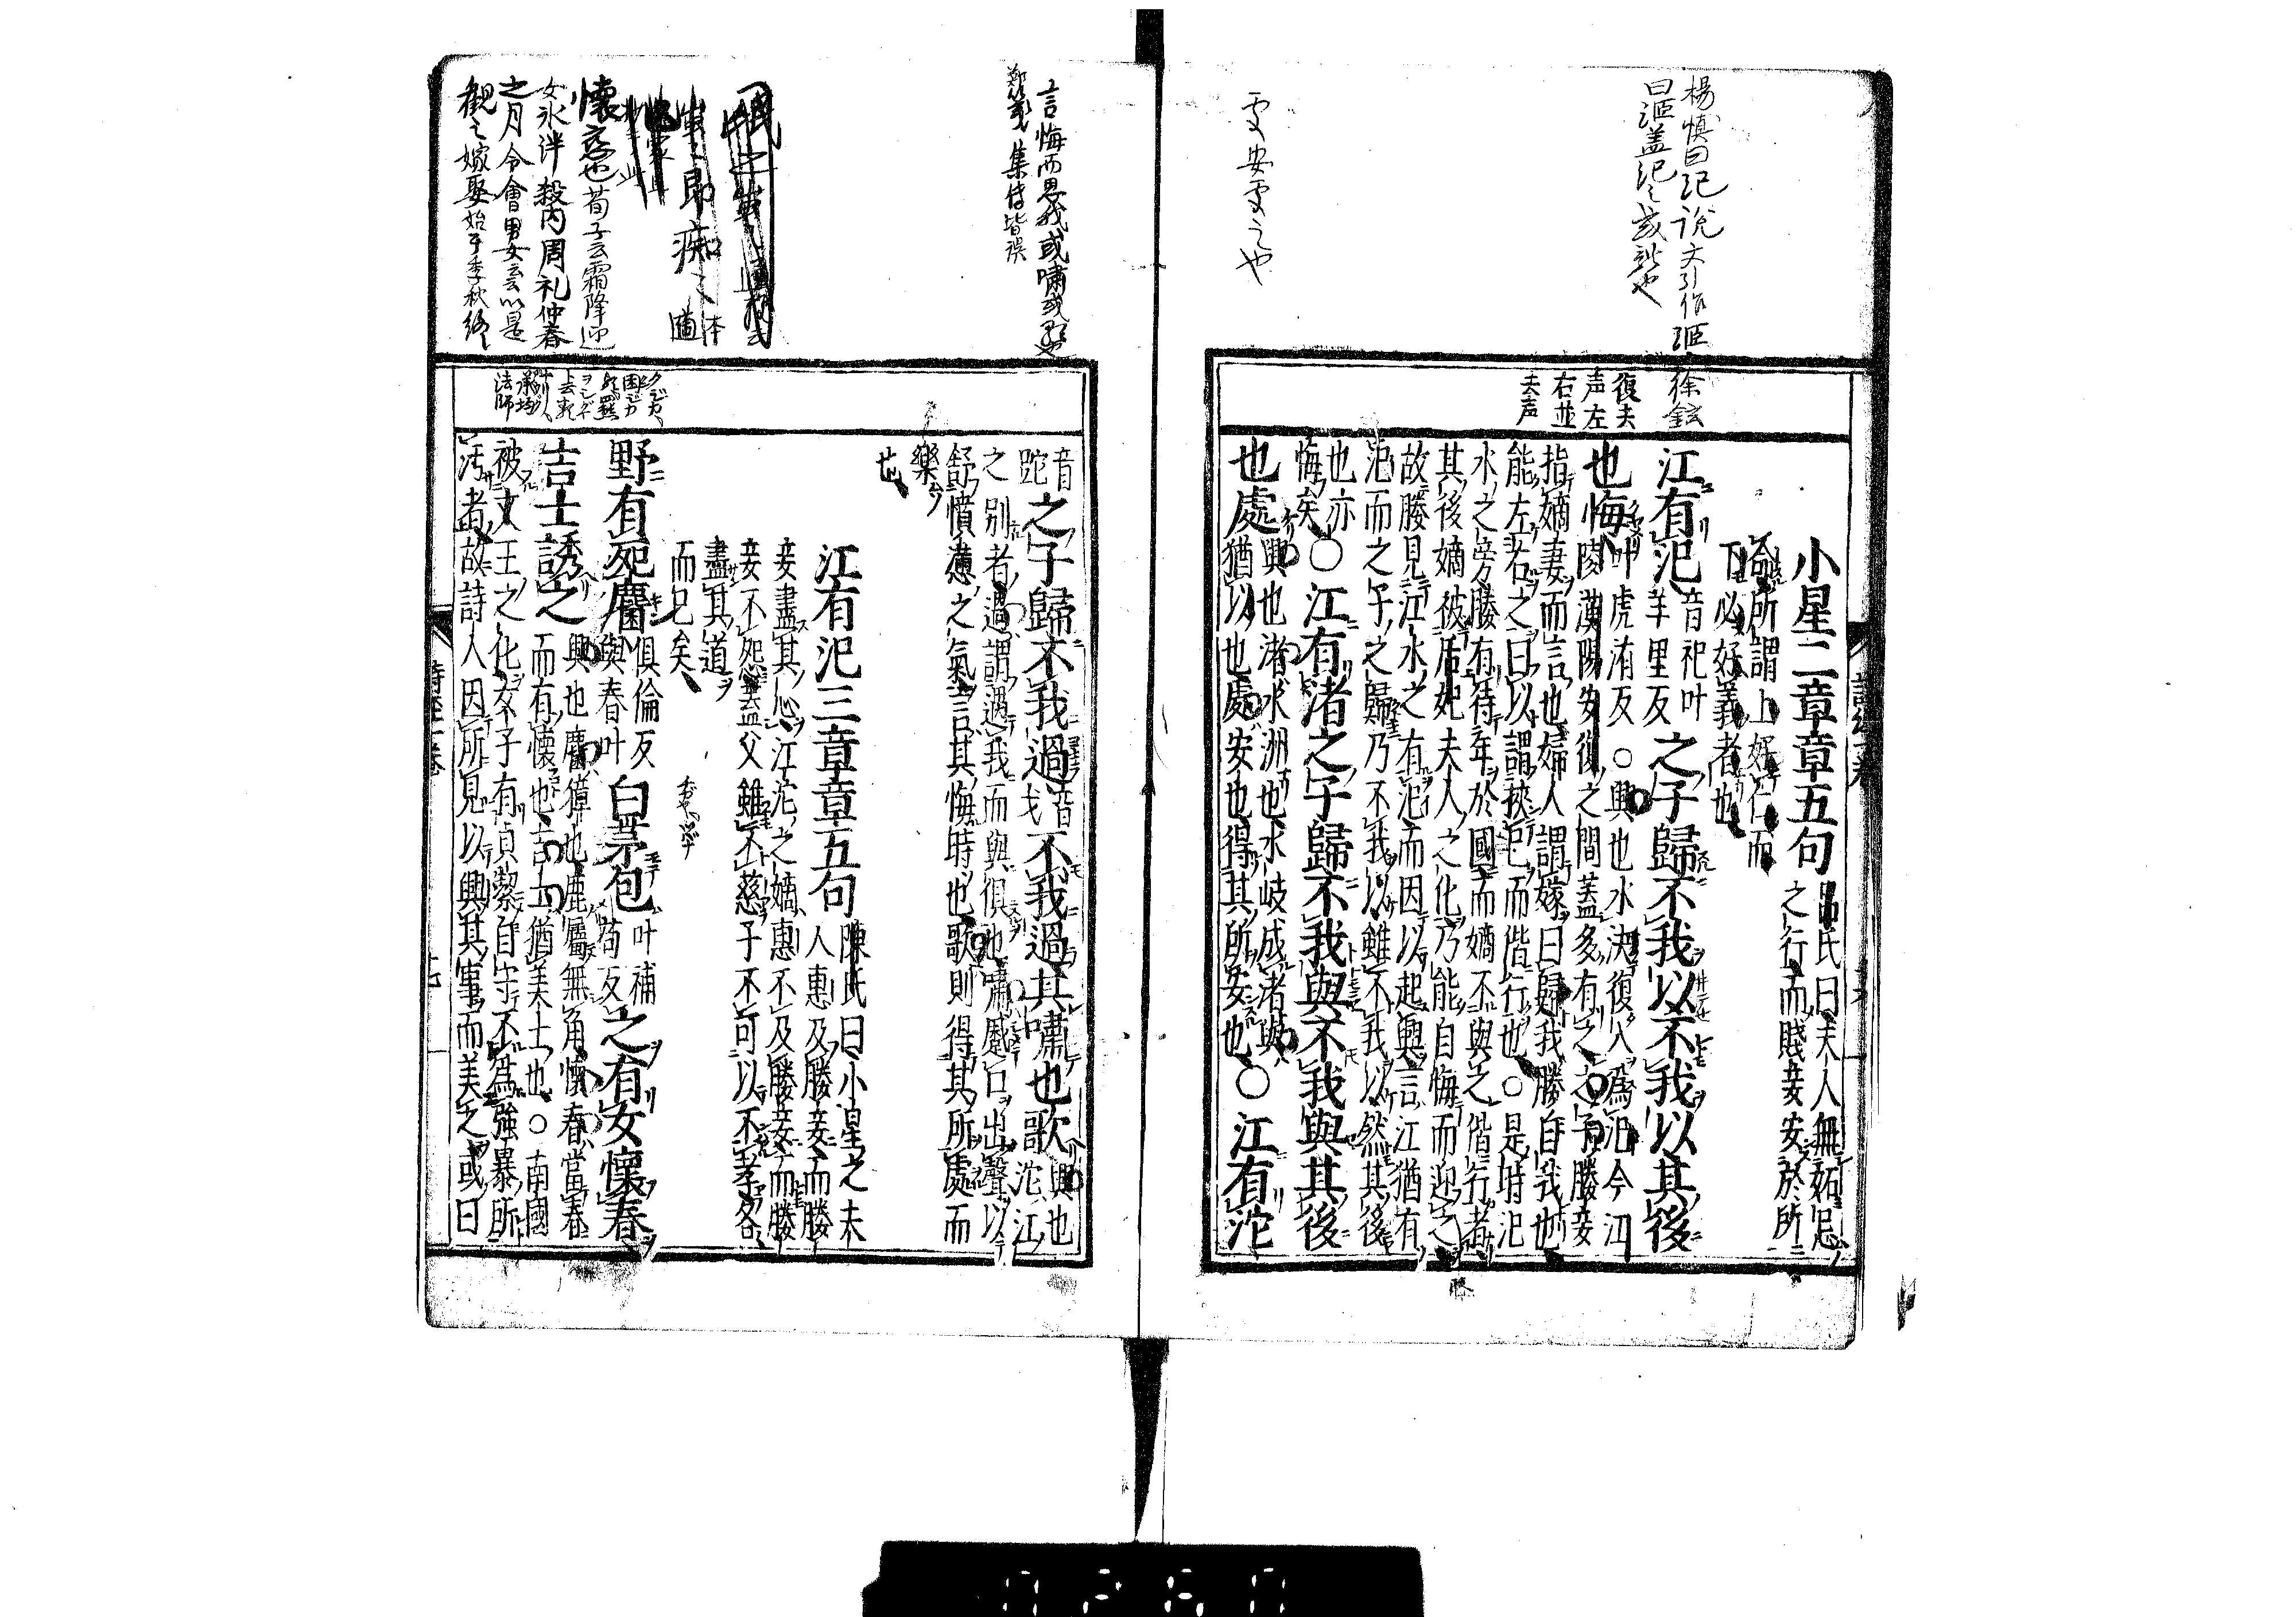 楊慎曰汜說文引作洍徐鉉
復夫
声左
右並
去声
小星二章章五句
呂氏曰夫人無妬忌
之行而賤妾安於所
命所謂上好仁而
下必好義者也
江有汜音祀叶羊里反之子歸不我以不我以其後
也悔叶虎洧反○興也水決復入爲汜今江
陵漢陽安復之間蓋多有之之子媵妾
指嫡妻而言也婦人謂嫁曰歸我媵自我也
能左右之曰以謂挾己而偕行也○是時汜
水之旁媵有待年於國而嫡不與之偕行者
其後嫡被后妃夫人之化乃能自悔而迎之
故媵見江水之有汜而因以起興言江猶有
汜而之子之歸乃不我以雖不我以然其後
也亦
悔矣○江有渚之子歸不我與不我與其後
也處興也渚水洲也水岐成渚與
猶以也處安也得其所安也○江有沱
言悔而思我或嘯或歌也
鄭箋集传皆誤
音
跎之子歸不我過音戈不我過其嘯也歌興也沱江
之別者過謂過我而與俱也嘯蹙口出聲以
舒憤懣之氣言其悔時也歌則得其所處而
樂
也
江有汜三章章五句
陳氏曰小星之夫
人惠及媵妾而媵
妾盡其心江沱之嫡惠不及媵妾而媵
妾不怨蓋父雖不慈子不可以不孝各
盡其道
而已矣
懐㤅也荀子云霜降迎
女氷泮殺内周礼仲春
之月令會男女云以是
觀之嫁娶始于季秋終
法師
野有死麕俱倫反與春叶白茅包叶補苟反之有女懷春
吉士誘之興也麕獐也鹿屬無角懷春當春
而有懷也吉士猶美士也○南國
被文王之化女子有貞潔自守不爲強暴所
汚者故詩人因所見以興其事而美之或曰
詩經一卷